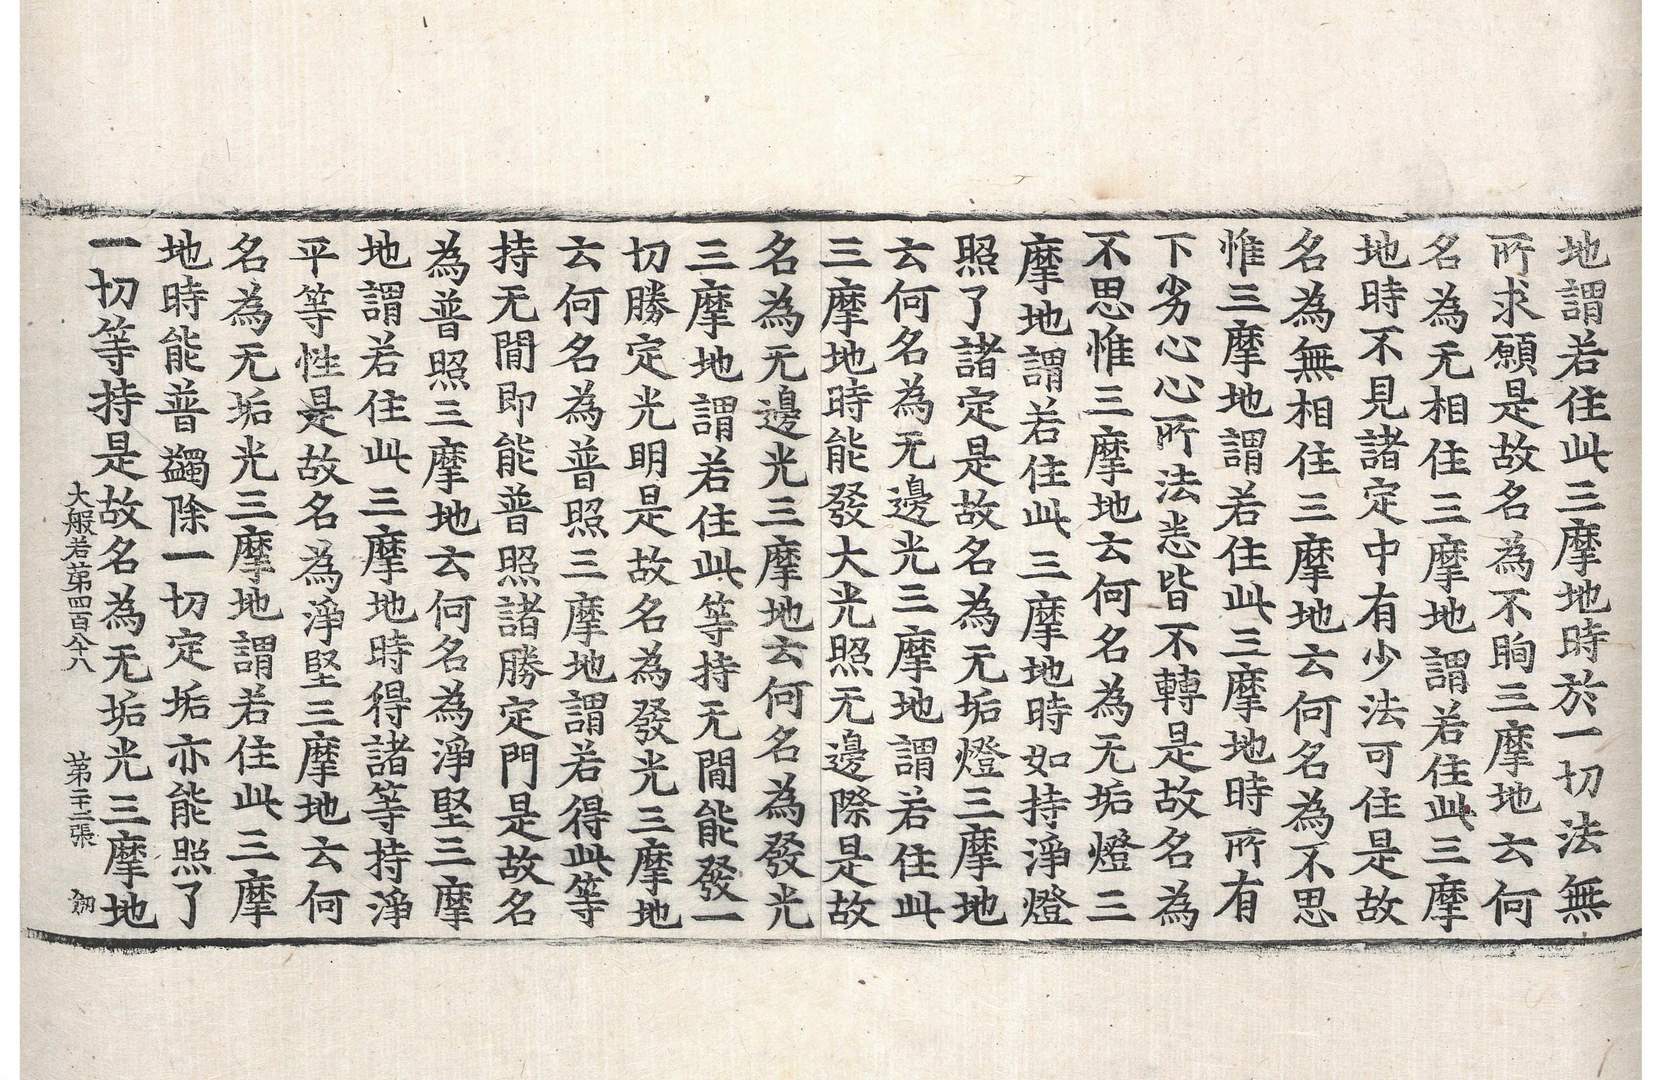 地謂若住此三摩地時於一切法無
所求願是故名為不眴三摩地云何
名為无相住三摩地謂若住此三摩
地時不見諸定中有少法可住是故
名為無相住三摩地云何名為不思
惟三摩地謂若住此三摩地時所有
下劣心心所法悉皆不轉是故名為
不思惟三摩地云何名為无垢燈三
摩地謂若住此三摩地時如持淨燈
照了諸定是故名為无垢燈三摩地
云何名為无邊光三摩地謂若住此
三摩地時能發大光照无邊際是故
名為无邊光三摩地云何名為發光
三摩地謂若住此等持无間能發一
切勝定光明是故名為發光三摩地
云何名為普照三摩地謂若得此等
持无間即能普照諸勝定門是故名
為普照三摩地云何名為淨堅三摩
地謂若住此三摩地時得諸等持淨
平等性是故名為淨堅三摩地云何
名為无垢光三摩地謂若住此三摩
地時能普蠲除一切定垢亦能照了
一切等持是故名為无垢光三摩地
大般若第四百八十八 第二十二張